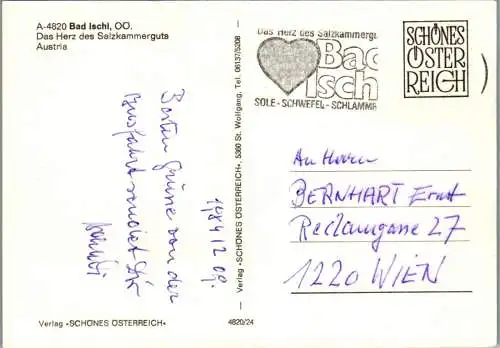 A-4820 Bad Ischl, OÖ.
Das Herz des Salzkammerguts
Austria
Das Herz des Salzkammergu
Bad
Isch
SOLE - SCHWEFEL - SCHLAMMB
SCHÖNES
ÖSTER
REICH
1984 12 09.
Besten Grüsse von der
Busfahrt sendet Dir
Verlag »SCHÖNES ÖSTERREICH« · 5360 St. Wolfgang, Tel. 06137/5208
An Herrn
BERNHART Ernst
Reclamgasse 27
1220 WIEN
Verlag »SCHÖNES ÖSTERREICH«
4820/24